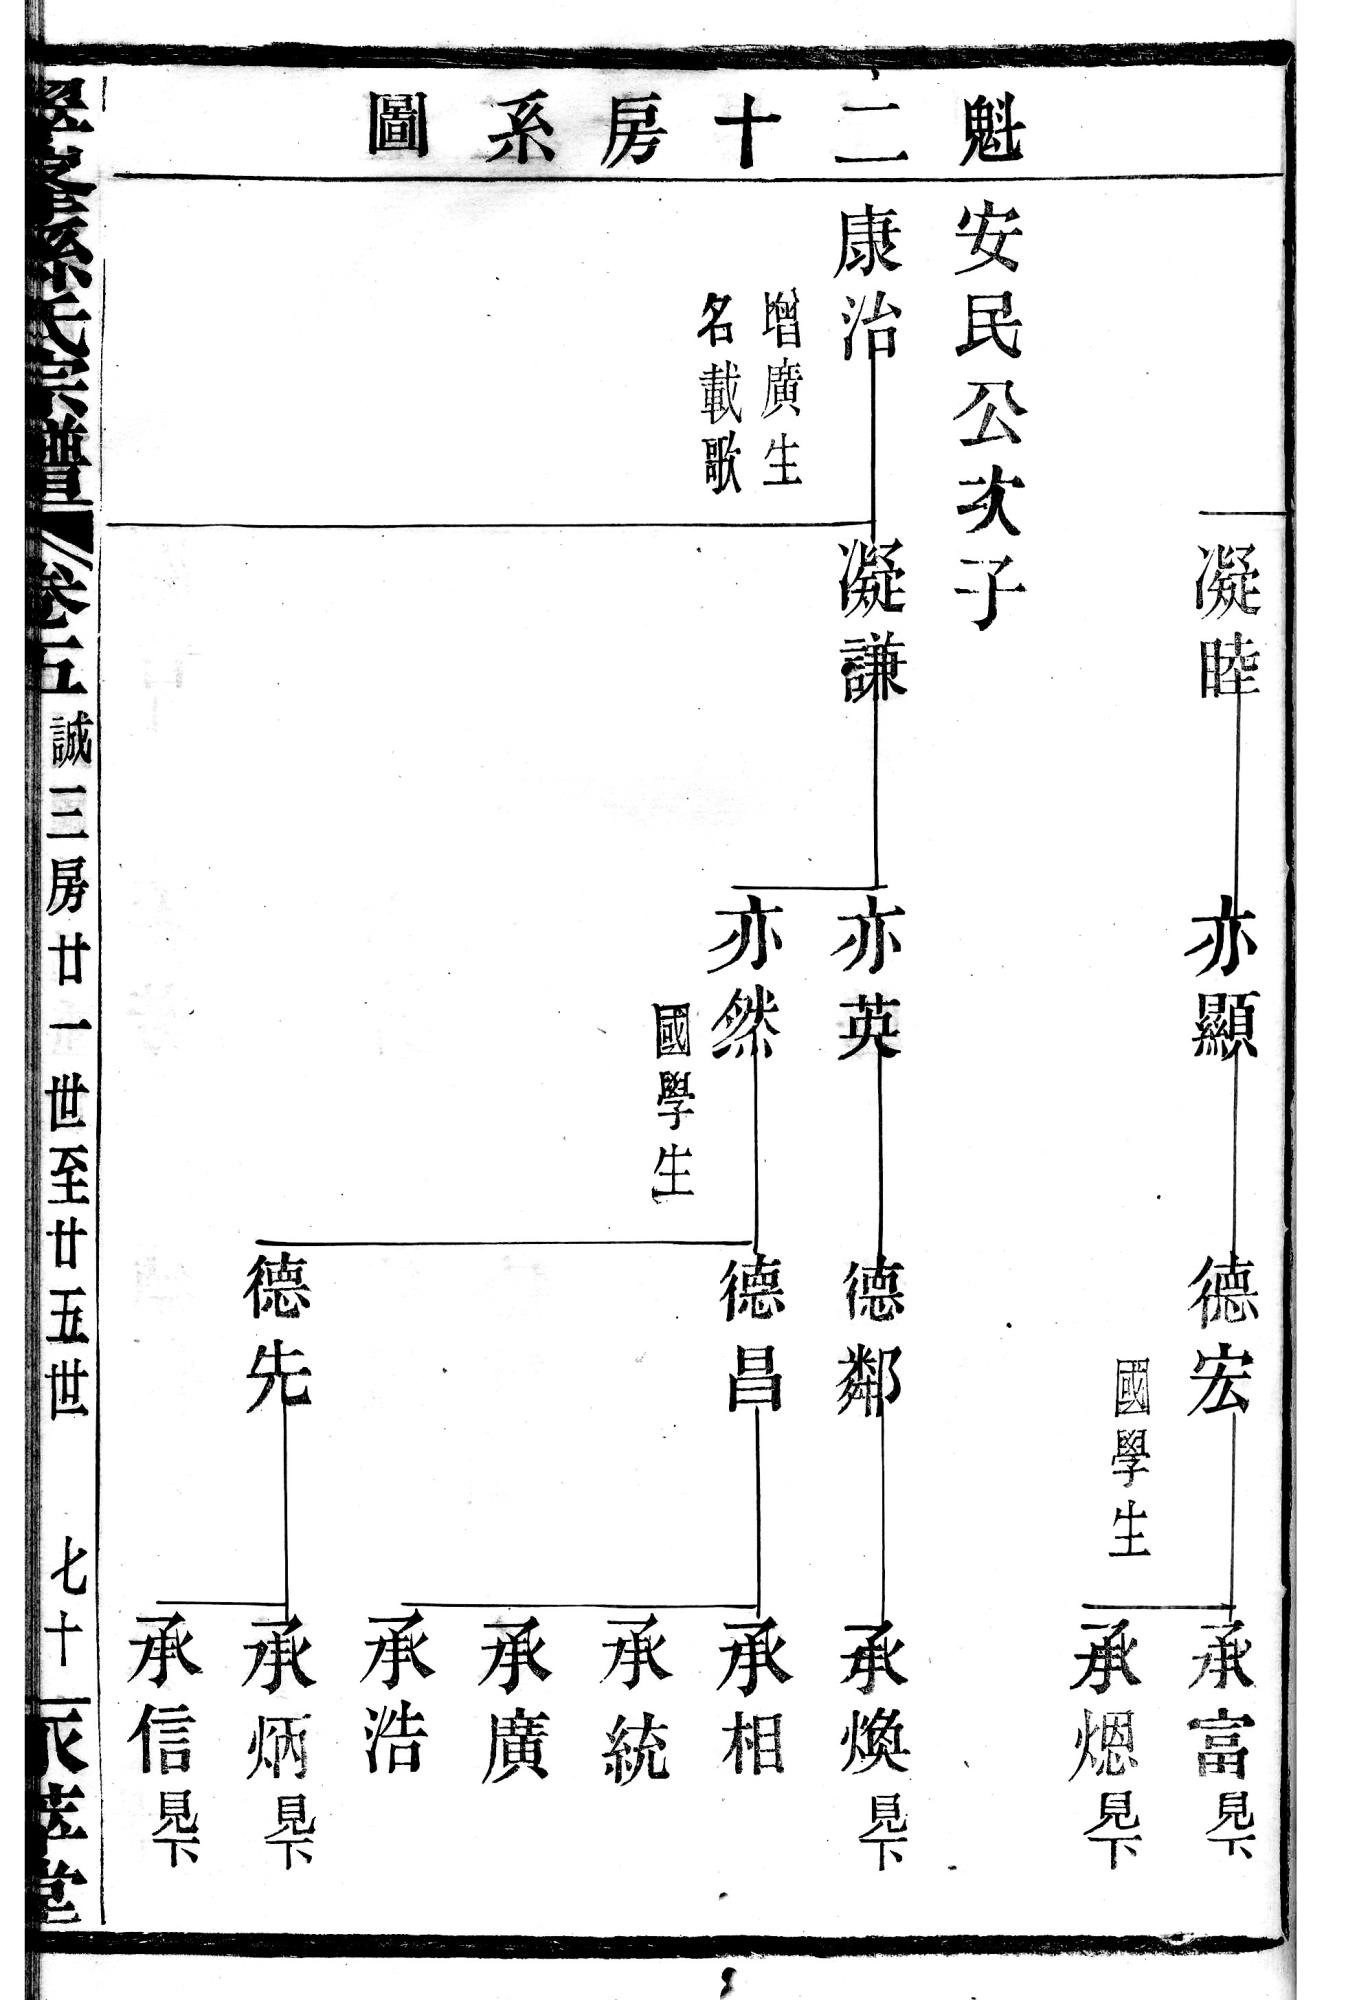 魁二十房系圖
凝睦
亦顯
德宏
國學生
承富見下
承煾見下
安民公次子
康治
增廣生
名載歌
凝謙
亦英
德鄰
承煥見下
亦然
國學生
德昌
承相
承統
承廣
承浩
德先
承炳見下
承信見下
孫氏宗譜
卷五
誠三房廿一世至廿五世
七十
堂